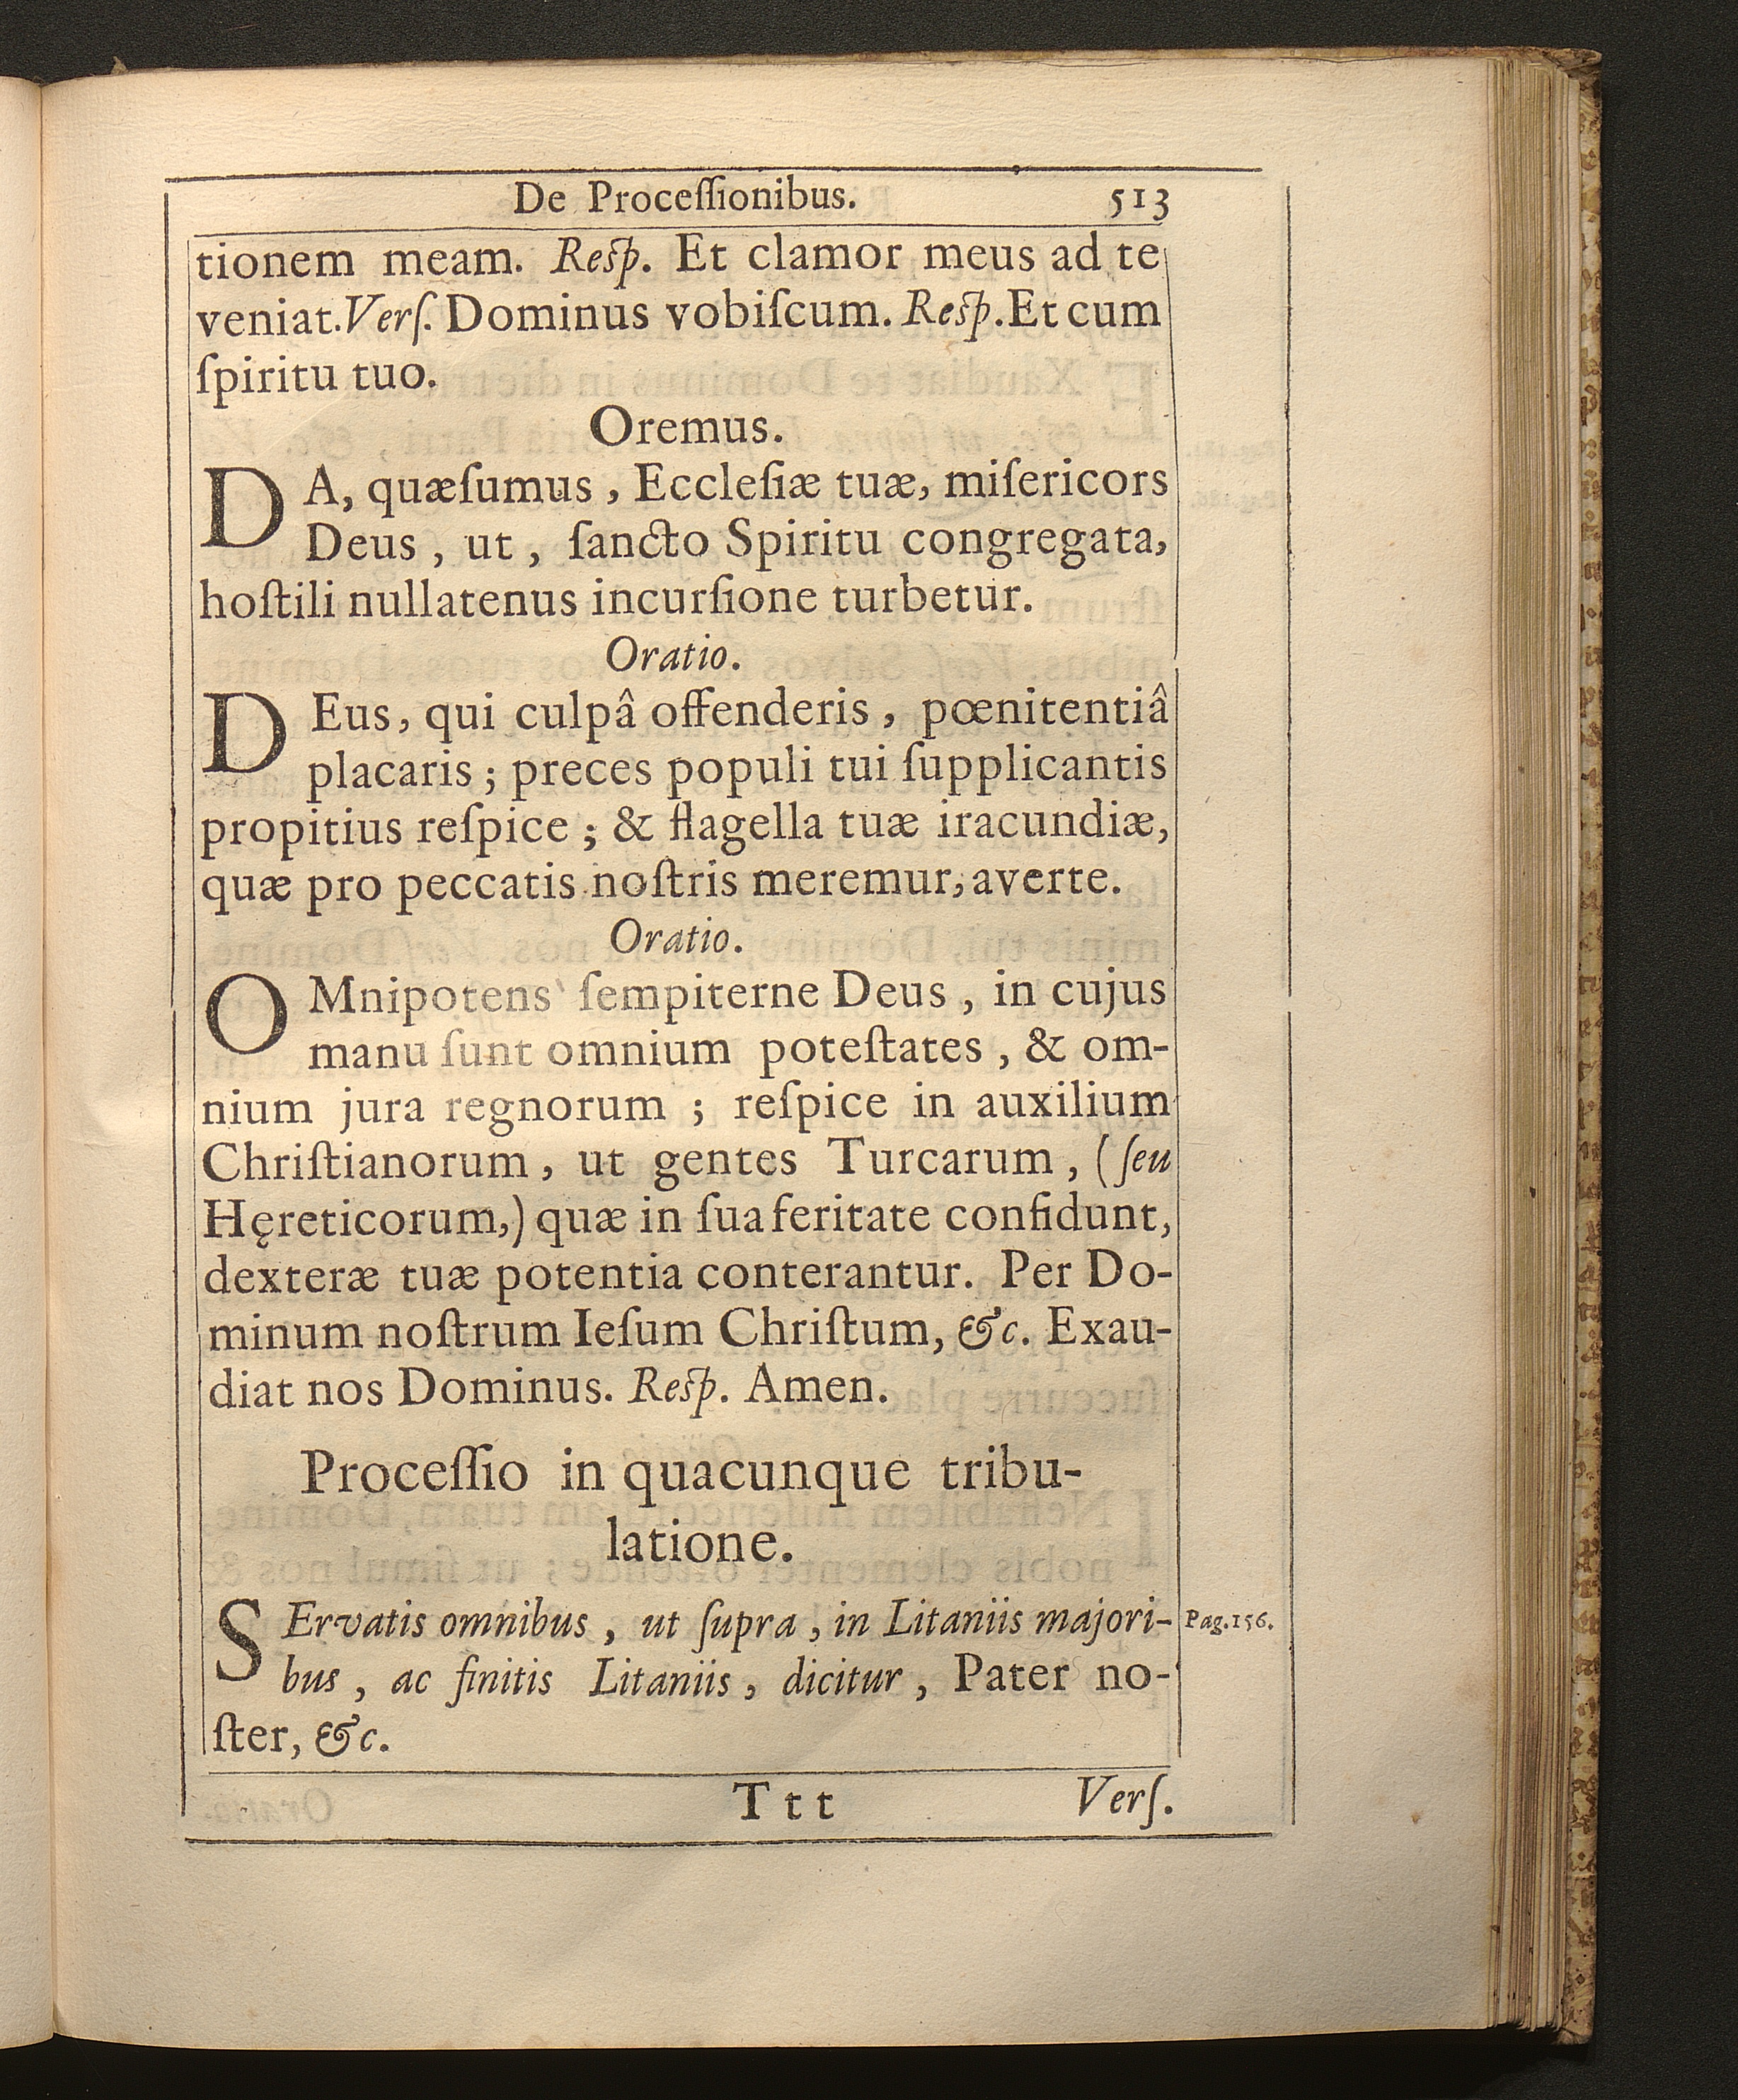 De Proceſſionibus. 513
tionem meam. Reſp. Et clamor meus ad te
veniat. Verſ. Dominus vobiſcum. Reſp. Et cum
ſpiritu tuo.
Oremus.
DA, quæſumus, Eccleſiæ tuæ, miſericors
Deus, ut, ſancto Spiritu congregata,
hoſtili nullatenus incurſione turbetur.
Oratio.
DEus, qui culpâ offenderis, pœnitentiâ
placaris; preces populi tui ſupplicantis
propitius reſpice; & flagella tuæ iracundiæ,
quæ pro peccatis noſtris meremur, averte.
Oratio.
OMnipotens ſempiterne Deus, in cujus
manu ſunt omnium poteſtates, & om-
nium jura regnorum; reſpice in auxilium
Chriſtianorum, ut gentes Turcarum, (ſeu
Hęreticorum,) quæ in ſua feritate confidunt,
dexteræ tuæ potentia conterantur. Per Do-
minum noſtrum Ieſum Chriſtum, &c. Exau-
diat nos Dominus. Reſp. Amen.
Proceſſio in quacunque tribu-
latione.
SErvatis omnibus, ut ſupra, in Litaniis majori- Pag. 156.
bus, ac finitis Litaniis, dicitur, Pater no-
ſter, &c.
Ttt Verſ.